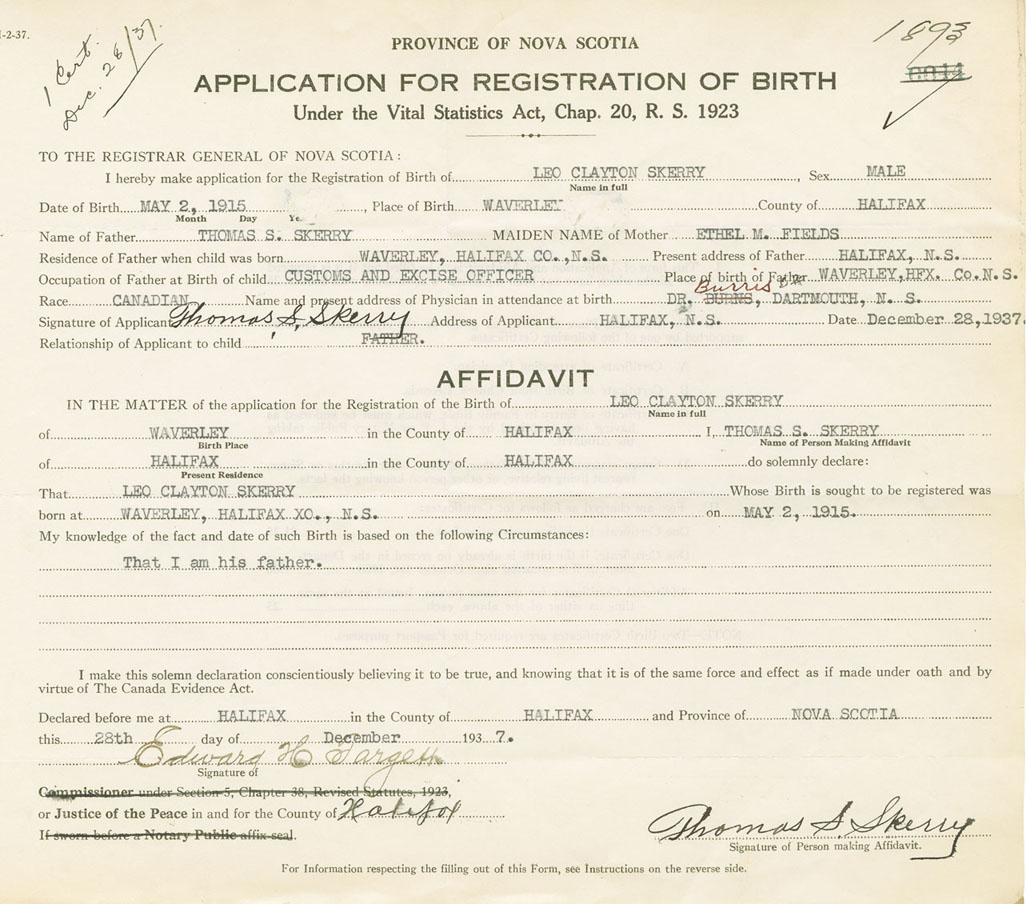 -2-37.
1 Cert.
Dec. 28/37.
1893
PROVINCE OF NOVA SCOTIA
APPLICATION FOR REGISTRATION OF BIRTH
Under the Vital Statistics Act, Chap. 20, R. S. 1923
TO THE REGISTRAR GENERAL OF NOVA SCOTIA:
I hereby make application for the Registration of Birth of LEO CLAYTON SKERRY, Sex MALE
Name in full
Date of Birth MAY 2, 1915, Place of Birth WAVERLEY County of HALIFAX
Month Day Ye
Name of Father THOMAS S. SKERRY MAIDEN NAME of Mother ETHEL M. FIELDS
Residence of Father when child was born WAVERLEY, HALIFAX CO.,N.S. Present address of Father HALIFAX, N.S.
Occupation of Father at Birth of child CUSTOMS AND EXCISE OFFICER Place of birth of Father WAVERLEY,HFX. Co.N.S.
Burris
Race CANADIAN Name and present address of Physician in attendance at birth DR. BURNS, DARTMOUTH, N. S.
Signature of Applicant Thomas S. Skerry Address of Applicant HALIFAX, N.S. Date December 28,1937.
Relationship of Applicant to child FATHER.
AFFIDAVIT
IN THE MATTER of the application for the Registration of the Birth of LEO CLAYTON SKERRY
Name in full
of WAVERLEY in the County of HALIFAX I, THOMAS S. SKERRY
Birth Place Name of Person Making Affidavit
of HALIFAX in the County of HALIFAX do solemnly declare:
Present Residence
That LEO CLAYTON SKERRY Whose Birth is sought to be registered was
born at WAVERLEY, HALIFAX XO., N.S. on MAY 2, 1915.
My knowledge of the fact and date of such Birth is based on the following Circumstances:
That I am his father.
I make this solemn declaration conscientiously believing it to be true, and knowing that it is of the same force and effect as if made under oath and by
virtue of The Canada Evidence Act.
Declared before me at HALIFAX in the County of HALIFAX and Province of NOVA SCOTIA
this 28th day of December 1937.
Edward H
Signature of
Commissioner under Section 5, Chapter 38, Revised Statutes, 1923,
or Justice of the Peace in and for the County of Halifax
If sworn before a Notary Public affix seal.
Thomas S. Skerry
Signature of Person making Affidavit.
For Information respecting the filling out of this Form, see Instructions on the reverse side.